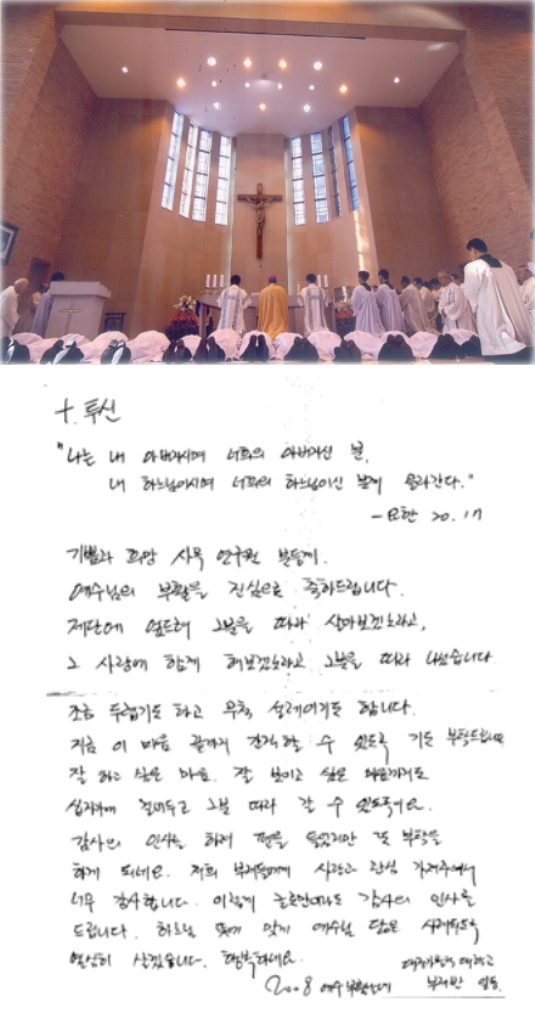 +. 투신
"나는 내 아버지시며 너희의 아버지신 분,
내 하느님이시며 너희의 하느님이신 분께 올라간다."
- 요한 20. 17
기쁨과 희망 사목 연구원 분들께.
예수님의 부활을 진심으로 축하드립니다.
제단에 엎드려 그분을 따라 살아보겠노라고,
그 사랑에 함께 해보겠노라고 그분을 따라 나섰습니다.
조금 두렵기도 하고 무척 설레이기도 합니다.
지금 이 마음 끝까지 간직할 수 있도록 기도 부탁드립니다
잘 하고 싶은 마음. 잘 보이고 싶은 마음까지도
십자가에 걸어두고 그분 따라 갈 수 있도록이요.
감사의 인사를 하려 펜을 들었지만 또 부탁을
하게 되네요. 저희 부제들에게 사랑과 관심 가져주셔서
너무 감사합니다. 이렇게 글로만이라도 감사의 인사를
드립니다. 하느님 뜻에 맞게 예수님 닮은 사제되도록
열심히 살겠습니다. 행복하세요.
2008 예수부활손에 부제반 일동.